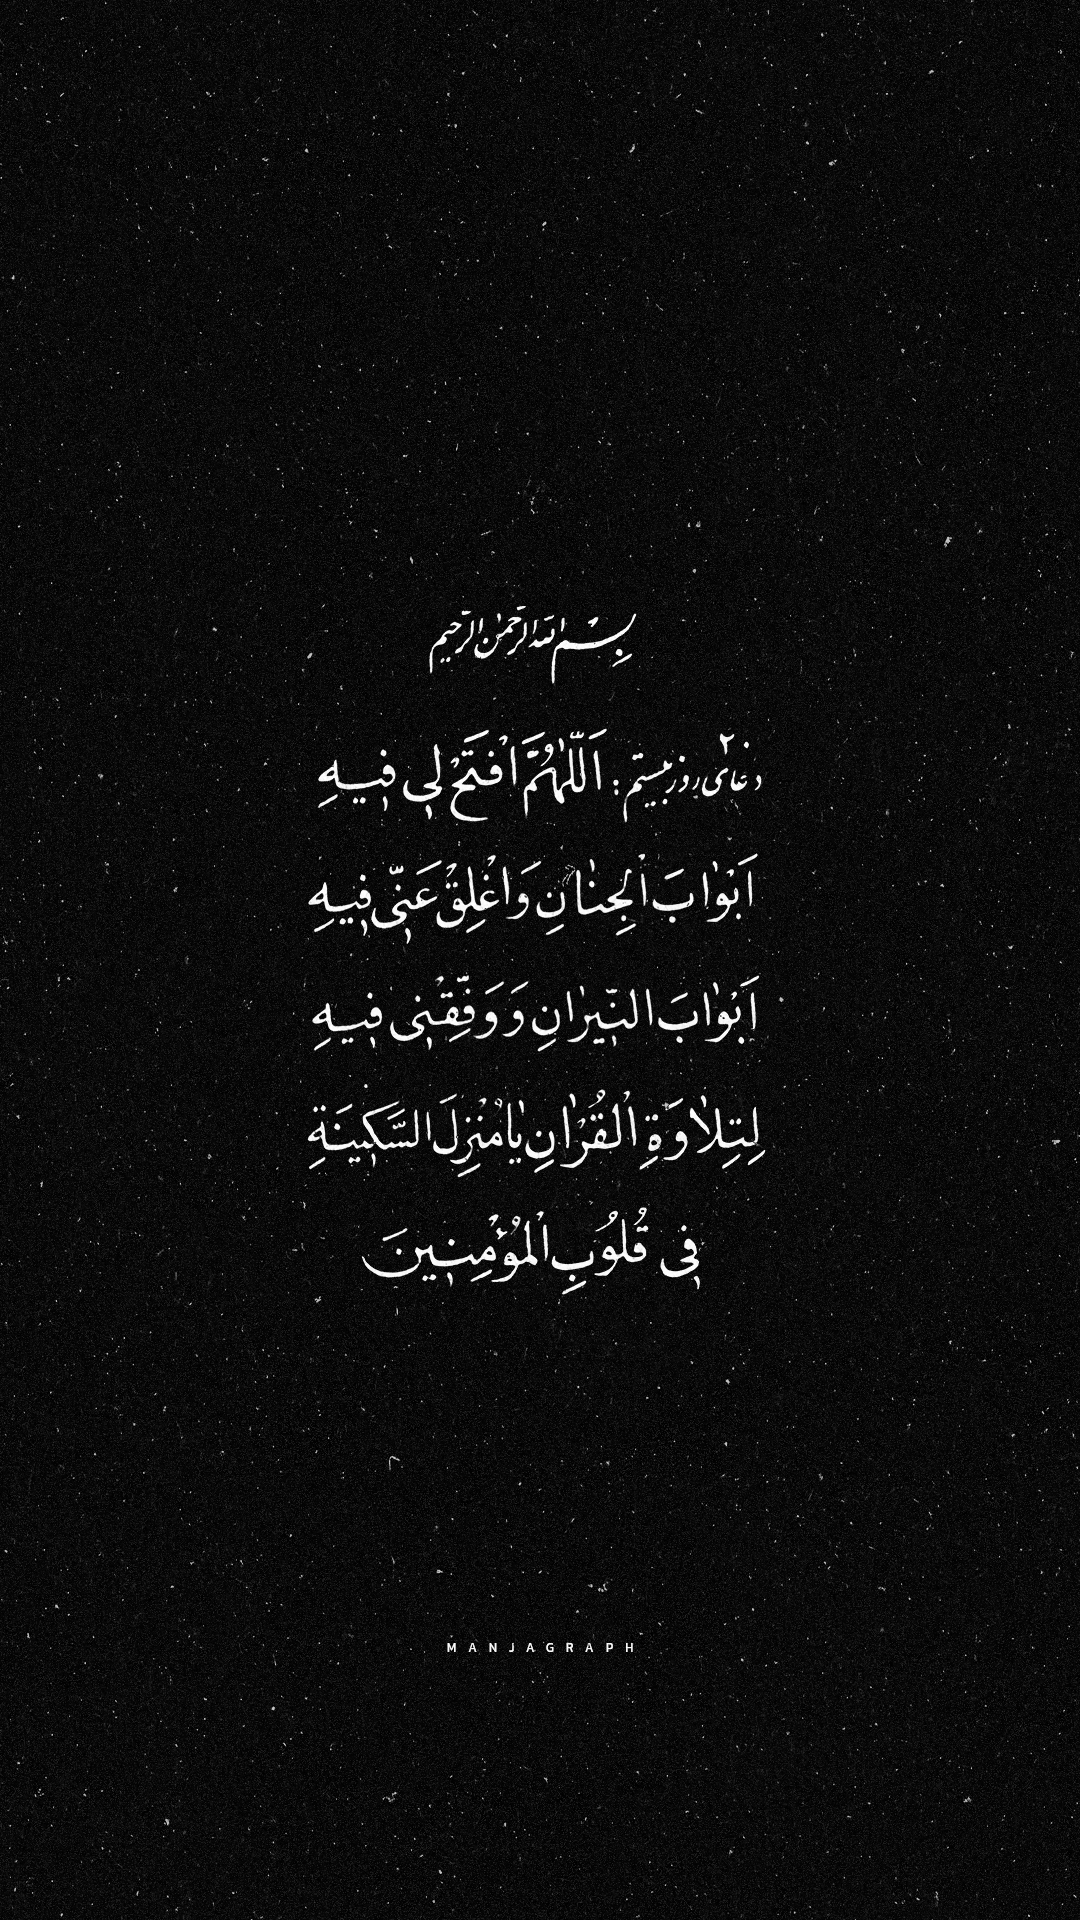 بِسْمِ اللهِ الرَّحْمٰنِ الرَّحيمِ
دعای روز بیستم ۲۰ : اَللّٰهُمَّ افْتَحْ لی فیهِ
اَبْوٰابَ الْجِنٰانِ وَاَغْلِقْ عَنّی فیهِ
اَبْوٰابَ النّیرٰانِ وَ وَفِّقْنی فیهِ
لِتِلٰاوَةِ الْقُرْاٰنِ یٰا مُنْزِلَ السَّکینَةِ
فی قُلُوبِ الْمُؤْمِنینَ
MANJAGRAPH